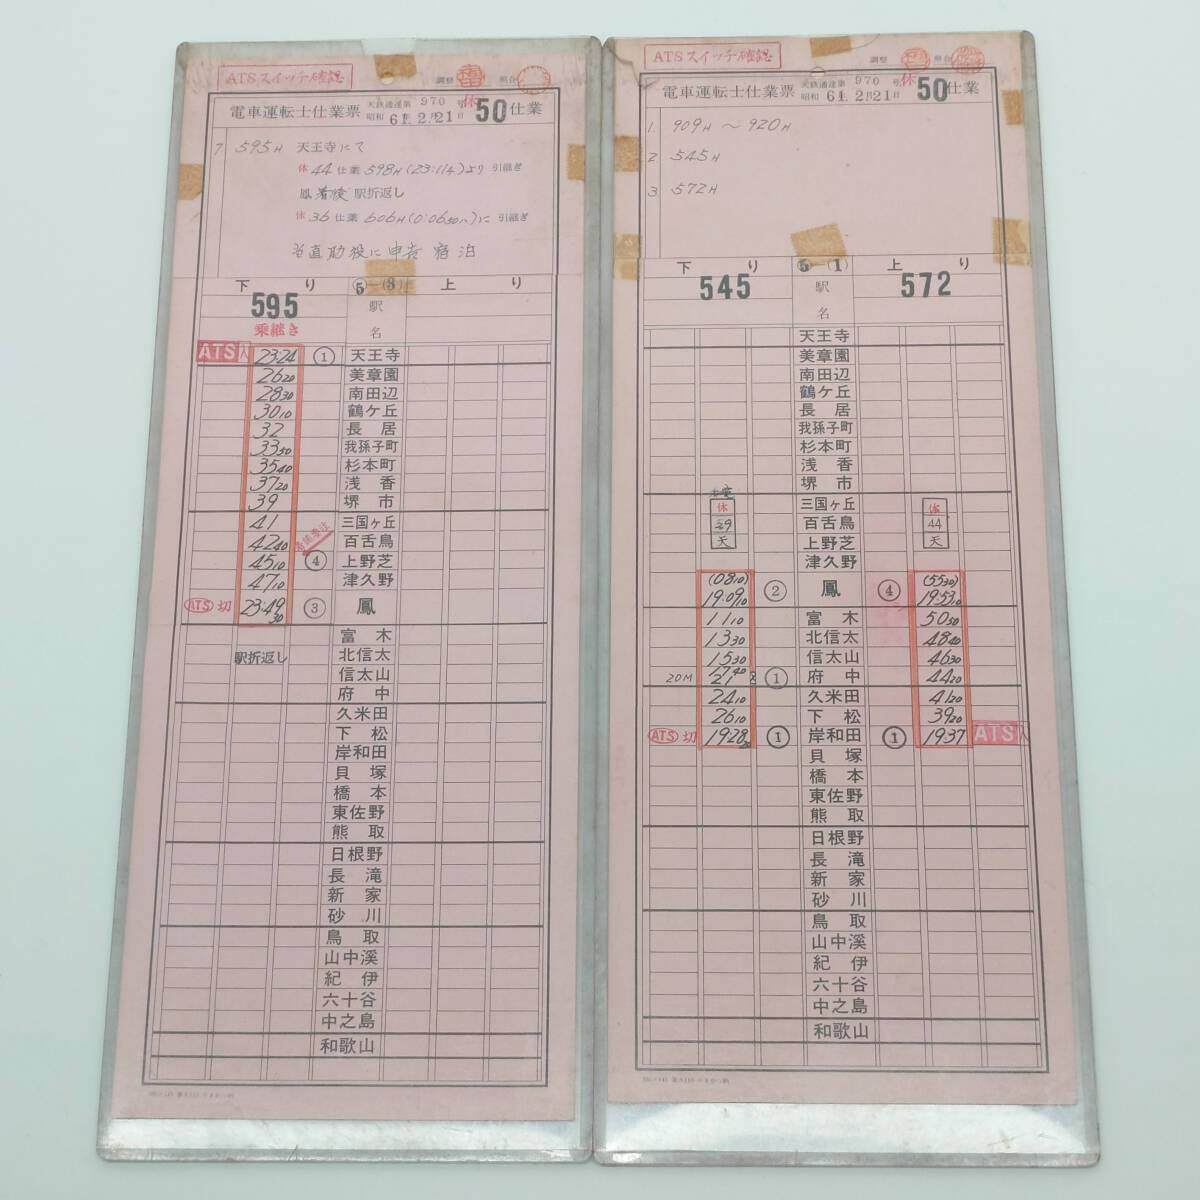 ATSスイッチ確認
調整 照合
電車運転士仕業票 天鉄通達第 970 号 休 50仕業
昭和 61.2月21日
7. 595H 天王寺にて
休 44仕業 598H(23:11½)より 引継ぎ
鳳着後 駅折返し
休 36仕業 606H(0:06 30ハ)に 引継ぎ
当直助役に申告 宿泊
下り ⑤-(3) 上り
595 駅名
乗継き
ATS入 23:24 ① 天王寺
26 20 美章園
28 30 南田辺
30 10 鶴ケ丘
32 長居
33 50 我孫子町
35 40 杉本町
37 20 浅香
39 堺市
41 三国ヶ丘
42 40 百舌鳥
45 10 ④ 上野芝
47 10 津久野
ATS 切 23:49 30 ③ 鳳
富木
駅折返し 北信太
信太山
府中
久米田
下松
岸和田
貝塚
橋本
東佐野
熊取
日根野
長滝
新家
砂川
鳥取
山中溪
紀伊
六十谷
中之島
和歌山
ATSスイッチ確認
調整 照合
電車運転士仕業票 天鉄通達第 970 号 休 50仕業
昭和 61.2月21日
1. 909H ～ 920H
2 545H
3 572H
下り ⑤-(1) 上り
545 駅名 572
天王寺
美章園
南田辺
鶴ケ丘
長居
我孫子町
杉本町
浅香
堺市
休 三国ヶ丘 休
29 百舌鳥 44
天 上野芝 天
津久野
(08 10) (55 30)
19:09 10 ② 鳳 ④ 19 53 10
11 10 富木 50 50
13 30 北信太 48 40
15 30 信太山 46 30
17 40
20M 21 ① 府中 44 20
24 10 久米田 41 20
26 10 下松 39 20
ATS 切 19 28 ① 岸和田 ① 19 37 ATS入
貝塚
橋本
東佐野
熊取
日根野
長滝
新家
砂川
鳥取
山中溪
紀伊
六十谷
中之島
和歌山